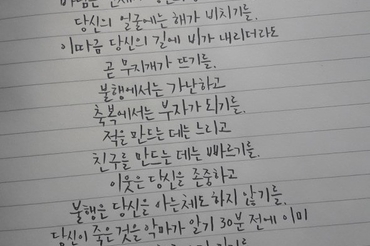 당신의 얼굴에는 해가 비치기를.
이따금 당신의 길에 비가 내리더라도
곧 무지개가 뜨기를.
불행에서는 가난하고
축복에서는 부자가 되기를.
적을 만드는 데는 느리고
친구를 만드는 데는 빠르기를.
이웃은 당신을 존중하고
불행은 당신을 아는체도 하지 않기를.
당신이 죽은 것을 악마가 알기 30분 전에 이미